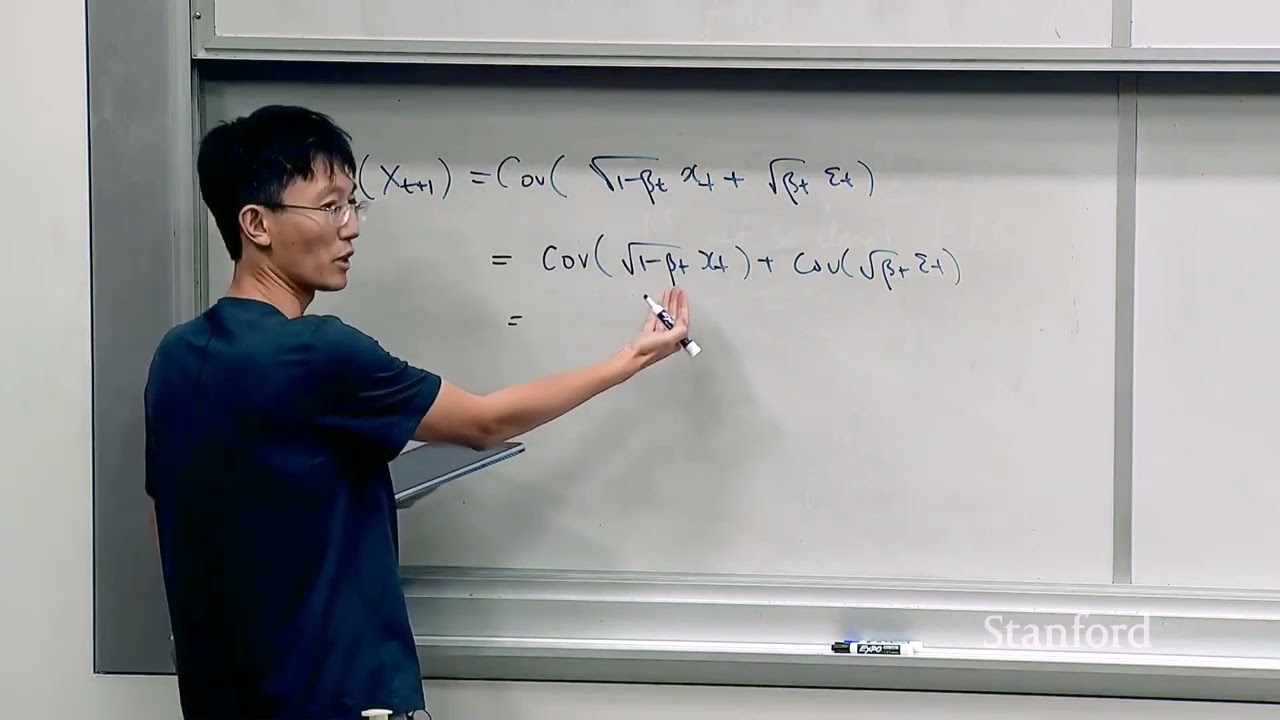 (X_{t+1}) = Cov( √1-β_t x_t + √β_t ε_t)
= Cov(√1-β_t x_t) + Cov(√β_t ε_t)
=
EXPO
EXPO
Stanford